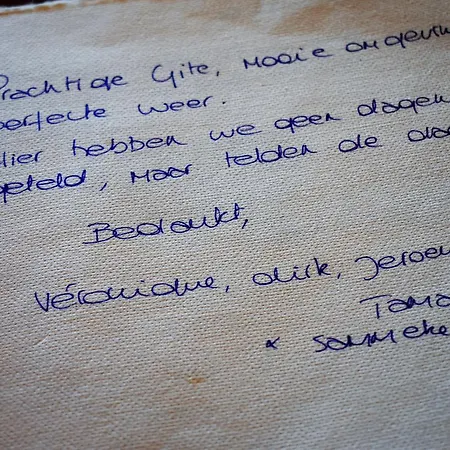 Prachtige Gite, mooie omgeving
perfecte weer.
Hier hebben we geen dagen
geteld, maar telden de dagen
Bedankt,
Véronique, Dirk, Jeroen
Tama
* Sammeke